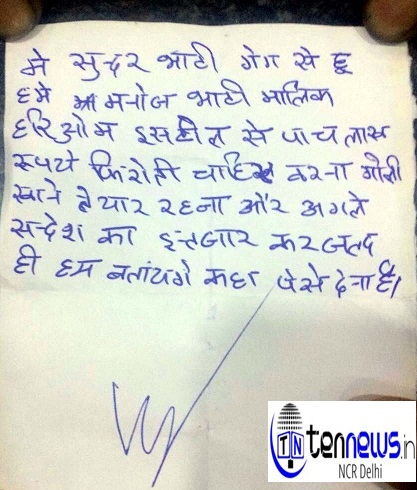 मे सुन्दर भाटी गेग से हू
हमे मनोज भाटी मालिक
हरिओम इसटील से पाच लाख
रूपये फिरोती चाहिए वरना गोली
खाने तैयार रहना और अगले
सन्देश का इन्तजार कर जल्द
ही हम बतांयगे कहा पेसे देना है।
TN tennews.in
NCR Delhi